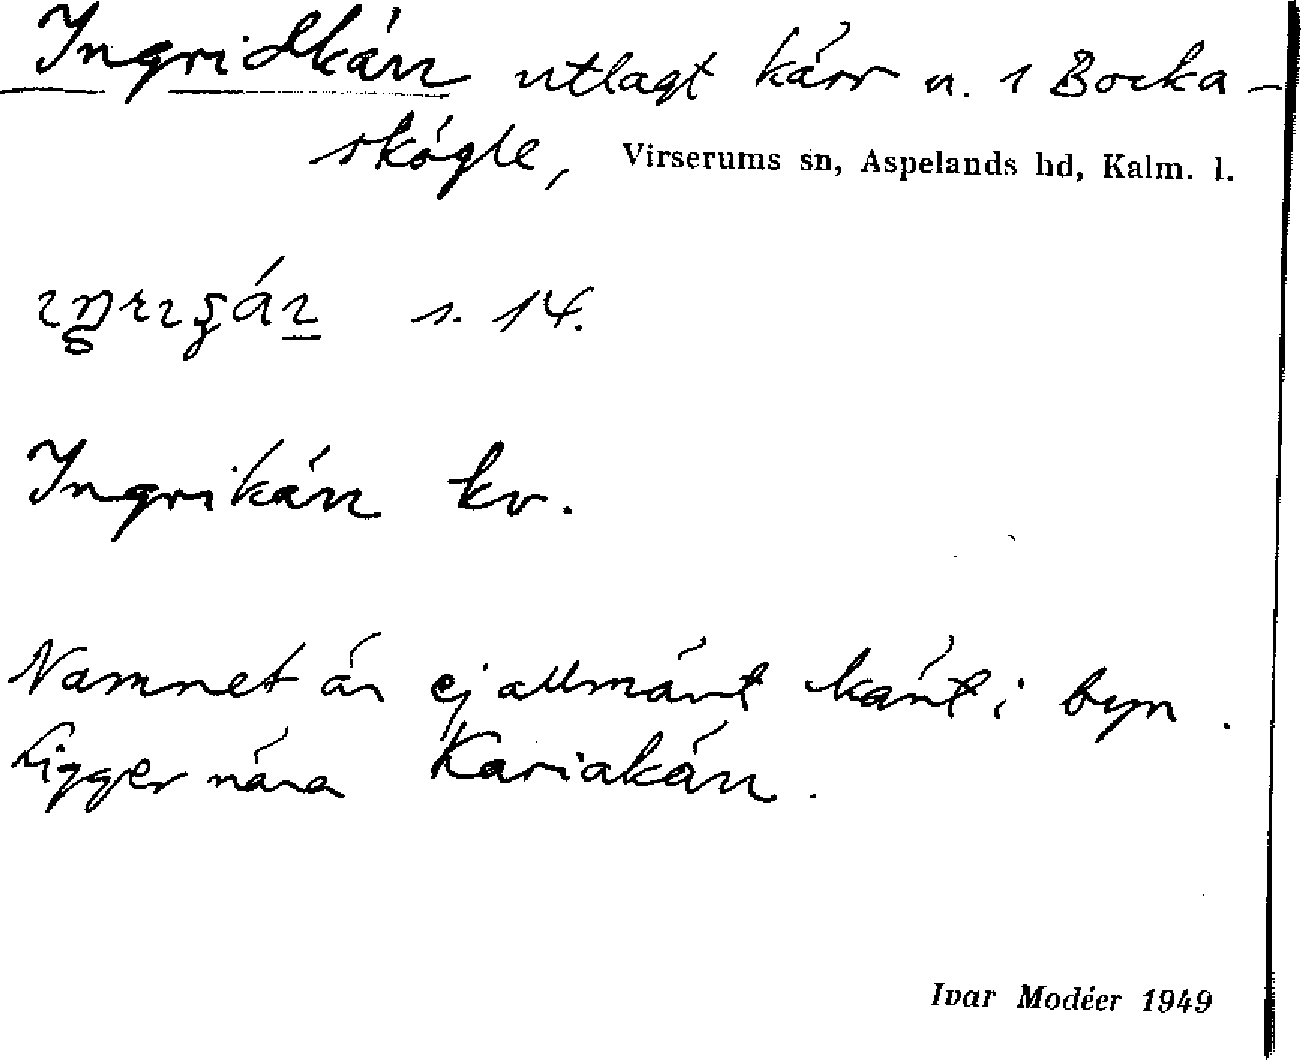 Ingridkärr utlagt kärr n. 1 Bocka-
skögle, Virserums sn, Aspelands hd, Kalm. l.
s. 14.
Ingrikärr kv.
Namnet är ej allmänt känt i byn.
Ligger nära Kariakärr.
Ivar Modéer 1949